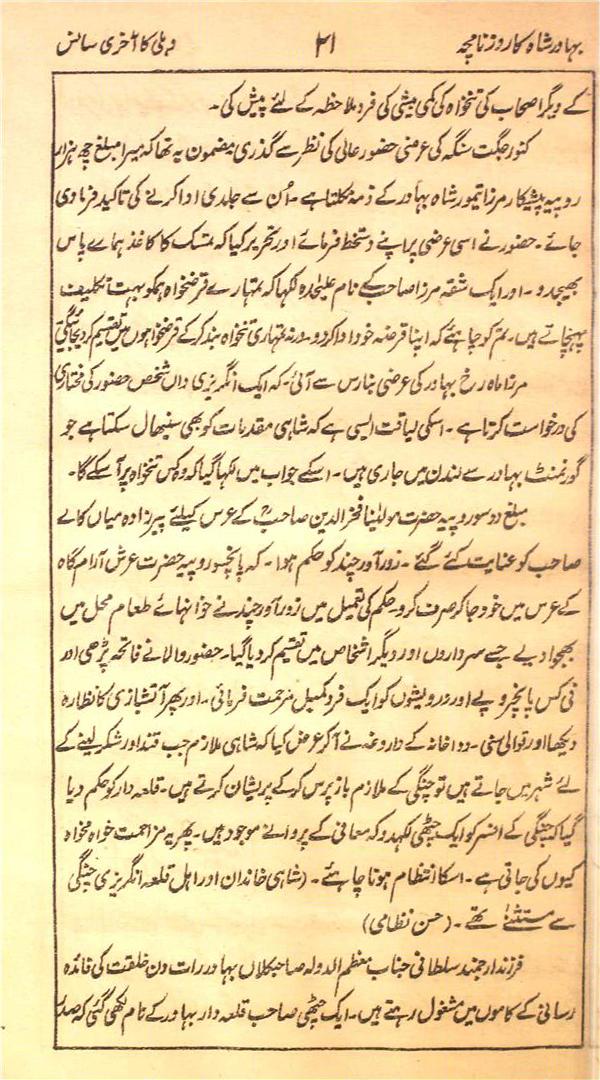 بہادر شاہ کا روزنامچہ ۲۱ دہلی کا آخری سانس
کے دیگر اصحاب کی تنخواہ کی کمی بیشی کی فرد ملاحظہ کے لئے پیش کی۔
کنور جگت سنگہ کی عرضی حضور عالی کی نظر سے گذری مضمون یہ تھا کہ میرا مبلغ چھ ہزار
روپیہ پیشکار مرزا تیمور شاہ بہادر کے ذمہ نکلتا ہے۔ اُن سے جلدی ادا کرنے کی تاکید فرما دی
جائے۔ حضور نے اسی عرضی پر اپنے دستخط فرمائے اور تحریر کیا کہ تمسک کا کاغذ ہمارے پاس
بھیجدو۔ اور ایک شقہ مرزا صاحب کے نام علیحدہ لکہا کہ تمہارے قرضخواہ ہمکو بہت تکلیف
پہنچاتے ہیں۔ تم کو چاہئے کہ اپنا قرضہ خود ادا کردو۔ ورنہ تمہاری تنخواہ بند کرکے قرضخواہوں میں تقسیم کردیجائیگی
مرزا ماہ رخ بہادر کی عرضی بنارس سے آئی۔ کہ ایک انگریزی داں شخص حضور کی مختاری
کی درخواست کرتا ہے۔ اسکی لیاقت ایسی ہے کہ شاہی مقدمات کو بھی سنبھال سکتا ہے جو
گورنمنٹ بہادر سے لندن میں جاری ہیں۔ اسکے جواب میں لکہا گیا کہ وہ کس تنخواہ پر آسکے گا۔
مبلغ دو سو روپیہ حضرت مولٰینا فخر الدین صاحبؒ کے عرس کیلئے پیرزادہ میاں کالے
صاحب کو عنایت کئے گئے۔ زور آور چند کو حکم ہوا۔ کہ پانچسو روپیہ حضرت عرش آرام گاہ
کے عرس میں خود جا کر صرف کرو۔ حکم کی تعمیل میں زور آور چند نے خوانہائے طعام محل میں
بھجوا دیے جسے سرداروں اور دیگر اشخاص میں تقسیم کردیا گیا۔ حضور والا نے فاتحہ پڑھی اور
فی کس پانچ روپے اور درویشوں کو ایک فرد کمبل مرحمت فرمائی۔ اور پھر آتشبازی کا نظارہ
دیکھا اور قوالی سنی۔ دوا خانہ کے داروغہ نے آکر عرض کیا کہ شاہی ملازم جب قند اور شکر لینے کے
لئے شہر میں جاتے ہیں تو چنگی کے ملازم باز پرس کرکے پریشان کرتے ہیں۔ قلعہ دار کو حکم دیا
گیا کہ چنگی کے افسر کو ایک چٹھی لکہدو کہ معافی کے پروانے موجود ہیں۔ پھر یہ مزاحمت خواہ مخواہ
کیوں کی جاتی ہے۔ اسکا انتظام ہونا چاہئے۔ (شاہی خاندان اور اہل قلعہ انگریزی چنگی
سے مستثنےٰ تھے۔ (حسن نظامی)
فرزند ارجمند سلطانی جناب معظم الدولہ صاحبکلاں بہادر رات دن خلقت کی فائدہ
رسانی کے کاموں میں مشغول رہتے ہیں۔ ایک چٹھی صاحب قلعہ دار بہادر کے نام لکھی گئی کہ صدر